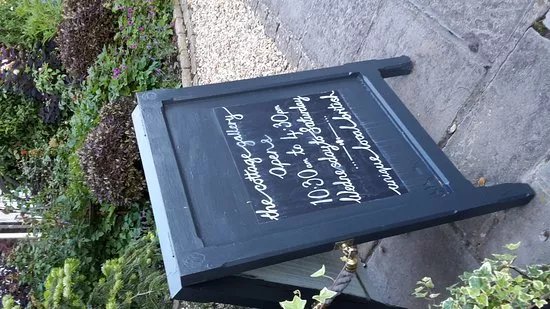 the cottage gallery
opens
10:30am to 4:30pm
Wednesday to Saturday
unique, local, british